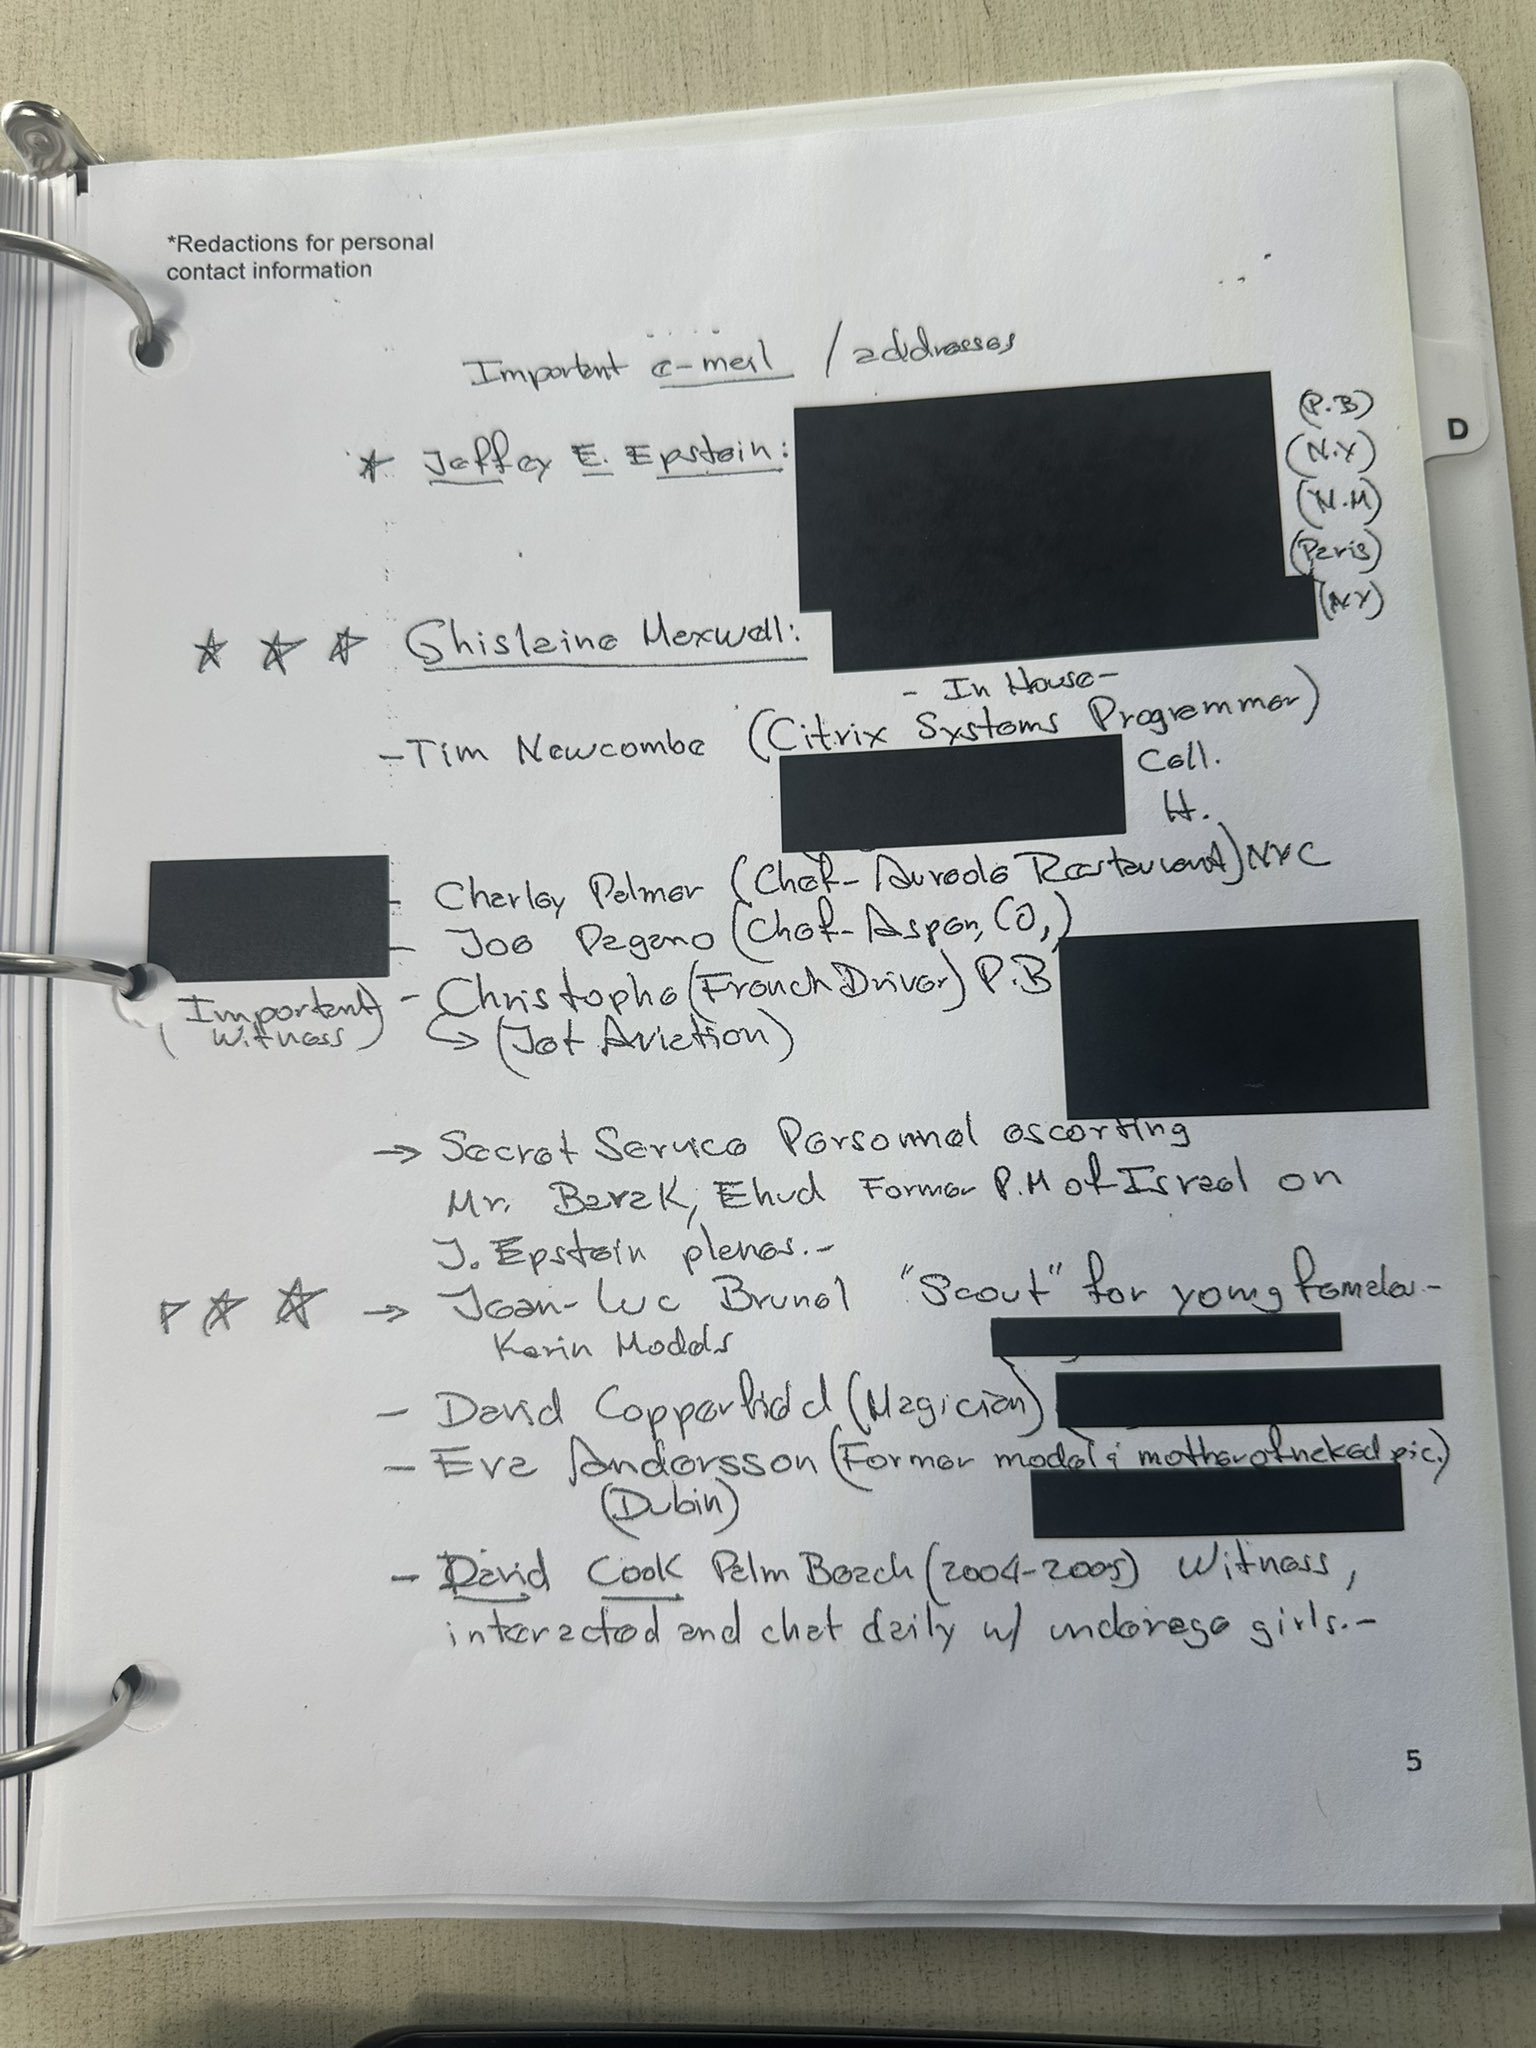 *Redactions for personal
contact information
D
Important e-mail / addresses
Jeffey E. Epstein: (P.B)
(N.Y)
(N.M)
(Paris)
Ghislaine Maxwell: (NY)
- In House -
- Tim Newcombe (Citrix Systems Programmer)
Cell.
H.
- Charley Palmer (Chef- Aureole Restaurant) NYC
- Joe Pagano (Chef- Aspen, CO,)
(Important - Christophe (French Driver) P.B
Witness) (Jet Aviation)
→ Secret Service Personnel escorting
Mr. Barak, Ehud Former P.M of Israel on
J. Epstein planes.-
→ Jean-Luc Brunel "Scout" for young females-
Karin Models
- David Copperfield (Magician)
- Eva Andersson (Former model & mother of naked pic.)
(Dubin)
- David Cook Palm Beach (2004-2005) Witness,
interacted and chat daily w/ underage girls.-
5